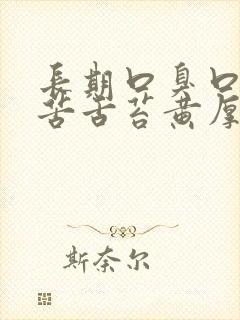 長期口臭口
苦舌苔黄厚
斯奈尔